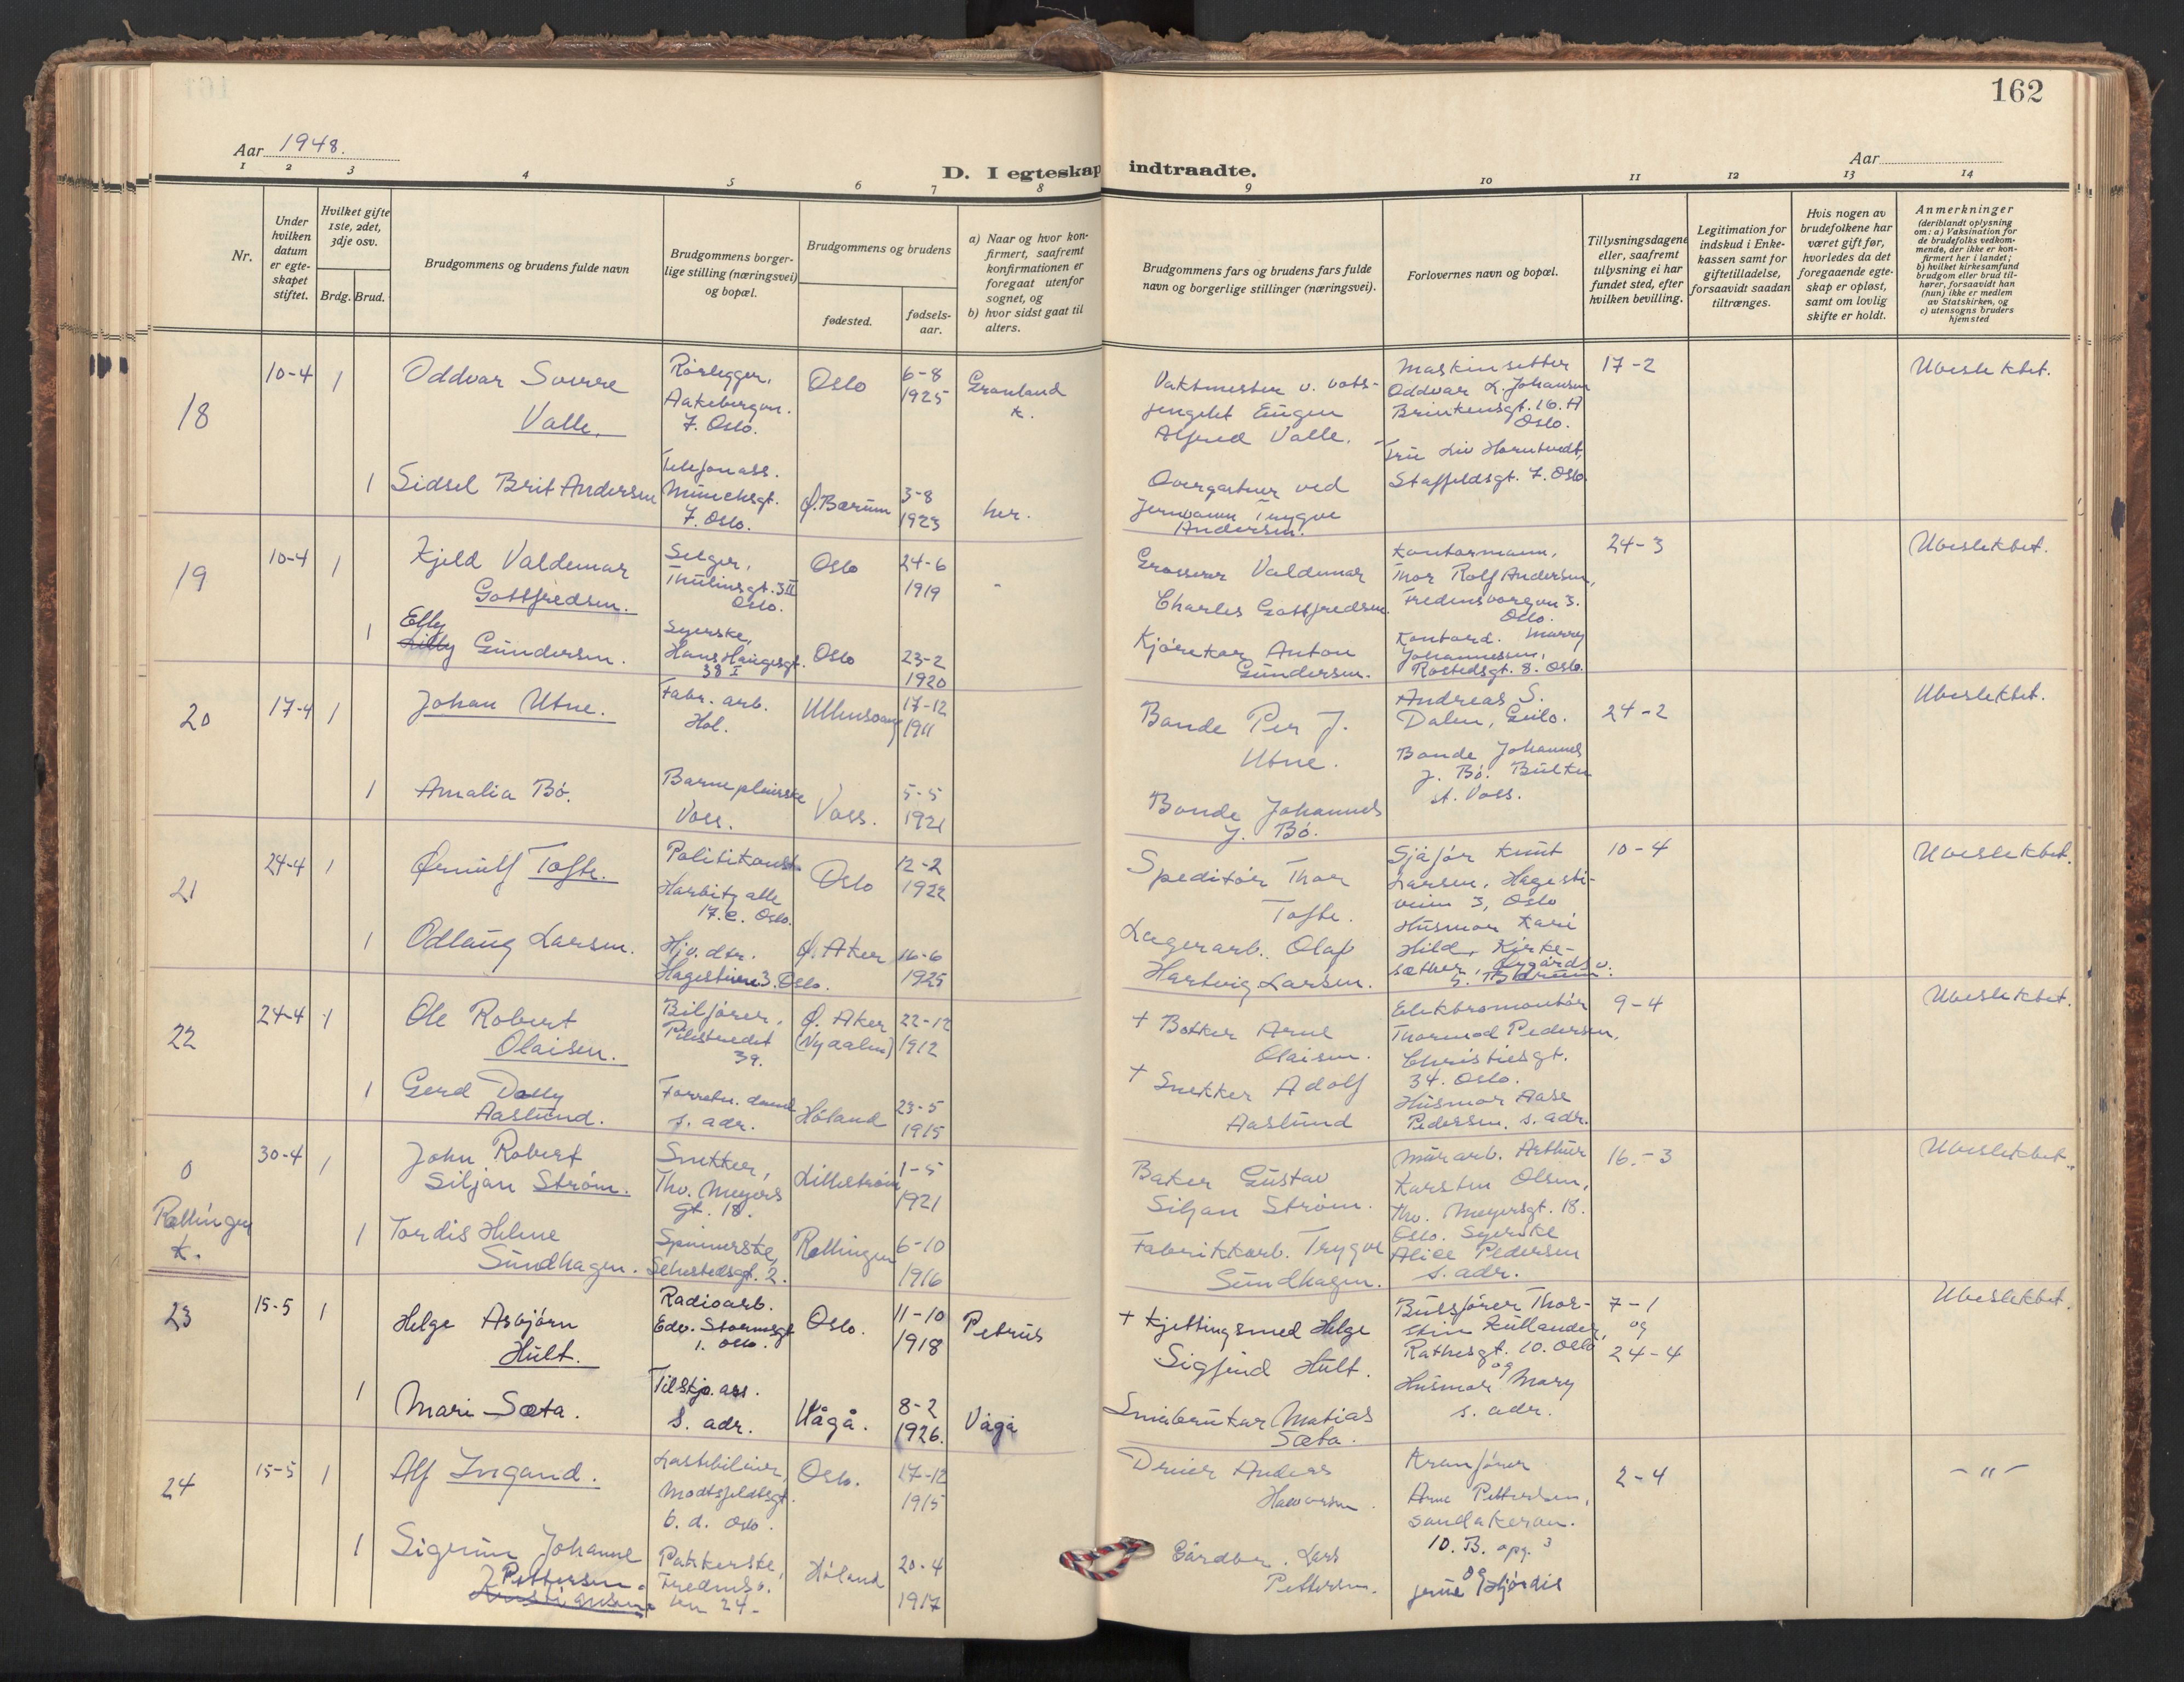 162
Aar 1948.
Aar
D. I egteskap indtraadte.
1 2 3 4 5 6 7 8 9 10 11 12 13 14
Nr.
Under hvilken datum er egte-skapet stiftet.
Hvilket gifte 1ste, 2det, 3dje osv.
Brdg. Brud.
Brudgommens og brudens fulde navn
Brudgommens borger-lige stilling (næringsvei) og bopæl.
Brudgommens og brudens
fødested.
fødsels-aar.
a) Naar og hvor kon-firmert, saafremt konfirmationen er foregaat utenfor sognet, og
b) hvor sidst gaat til alters.
Brudgommens fars og brudens fars fulde navn og borgerlige stillinger (næringsvei).
Forlovernes navn og bopæl.
Tillysningsdagene eller, saafremt tillysning ei har fundet sted, efter hvilken bevilling.
Legitimation for indskud i Enke-kassen samt for giftetilladelse, forsaavidt saadan tiltrænges.
Hvis nogen av brudefolkene har været gift før, hvorledes da det foregaaende egte-skap er opløst, samt om lovlig skifte er holdt.
Anmerkninger
(deriblandt oplysning om: a) Vaksination for de brudefolks vedkom-mende, der ikke er kon-firmert her i landet; b) hvilket kirkesamfund brudgom eller brud til-hører, forsaavidt han (hun) ikke er medlem av Statskirken, og c) utensogns bruders hjemsted
18
10-4
1
Oddvar Sverre
Valle.
Rørlegger,
Aakebergvn.
7. Oslo.
Oslo
6-8
1925
Grønland
k.
Vaktmester v. bots-
fengslet Eugen
Alfred Valle.
Maskinsetter
Oddvar L. Johansen
Brinkensgt. 16. A
Oslo.
17-2
Ubeslektet.
1
Sidsel Brit Andersen
Telefonass.
Munchsgt.
7. Oslo.
Ø. Bærum
3-8
1923
her.
Overgartner ved
Jernbanen Trygve
Andersen.
Fru Liv Horntvedt,
Staffeldsgt. 7. Oslo.
19
10-4
1
Kjeld Valdemar
Gottfredsen.
Selger,
Thulinsgt. 3 II
Oslo.
Oslo
24-6
1919
-
Grosserer Valdemar
Charles Gottfredsen.
Kontormann,
Thor Rolf Andersen,
Fredensborgvn 3.
Oslo.
24-3
Ubeslektet.
1
Elly
Lilly Gundersen.
Syerske,
Hans Haugesgt.
38 I
Oslo
23-2
1920
Kjørekar Anton
Gundersen.
Kontord. Marry
Johannessen,
Rostedsgt. 8. Oslo.
20
17-4
1
Johan Utne.
Fabr. arb.
Hol.
Ullensvang
17-12
1911
Bonde Per J.
Utne.
Andreas S.
Dalen, Geilo.
24-2
Ubeslektet.
1
Amalia Bø.
Barnepleierske
Voss.
Voss.
5-5
1921
Bonde Johannes
J. Bø.
Bonde Johannes
J. Bø. Bulken
st. Voss.
21
24-4
1
Ørnulf Tofte.
Politikonst.
Harbitz alle
17. c. Oslo.
Oslo
12-2
1922
Speditør Thor
Tofte.
Sjåfør Knut
Larsen, Hagesti-
veien 3, Oslo
10-4
Ubeslektet.
1
Odlaug Larsen.
Hjv. dtr.
Hagestivn 3. Oslo.
Ø. Aker
16-6
1925
Lagerarb. Olaf
Hartvig Larsen.
Husmor Kari
Hild, Kirke-
sæther,
22
24-4
1
Ole Robert
Olaisen.
Bilfører,
Pilestredet
39.
Ø. Aker
(Nyaalen)
22-12
1912
+ Bøtker Arne
Olaisen.
Elektromontør
Thormod Pedersen,
Christiesgt.
34. Oslo.
9-4
Ubeslektet.
1
Gerd Dolly
Aaslund.
Forretn. dame
s. adr.
Høland
23-5
1915
+ Snekker Adolf
Aaslund
Husmor Aase
Pedersen. s. adr.
0
Rællingen
k.
30-4
1
John Robert
Siljan Strøm.
Snekker,
Thv. Meyers
gt. 18.
Lillestrøm
1-5
1921
Baker Gustav
Siljan Strøm.
Murarb. Arthur
Karsten Olsen,
Thv. Meyersgt. 18.
16.-3
Ubeslektet.
1
Tordis Helene
Sundhagen.
Spinnerske,
Sehestedsgt. 2.
Rællingen
6-10
1916
Fabrikkarb. Trygve
Sundhagen.
Oslo. Syerske
Alice Pedersen
s. adr.
23
15-5
1
Helge Asbjørn
Hult.
Radioarb.
Edv. Stormsgt
1. Oslo.
Oslo.
11-10
1918
Petrus
+ Kjettingsmed Helge
Sigfred Hult.
Bussfører Thor-
stein Kullander,
Rathesgt. 10. Oslo
7-1
og
24-4
Ubeslektet.
1
Mari Sæta.
Tilskj. ass.
s. adr.
Vågå.
8-2
1926.
Vågå
Småbrukar Matias
Sæta.
og
Husmor Mary
s. adr.
24
15-5
1
Alf Ingand.
Lastebileier,
Modtsfeldtsgt.
6. d. Oslo.
Oslo.
17-12
1915
Dreier Anders
Halvorsen.
Kranfører
Arne Pettersen,
Sandakervn.
10. B. opg. 3
2-4
- " -
1
Sigrun Johanne
Pettersen.
Kristiansen.
Pakkerske,
Fredensb.
vn 24.
Høland
20-4
1917
Gårdbr. Lars
Pettersen.
og
frue Hjørdis